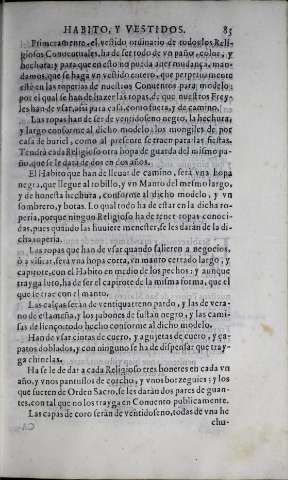 HABITO, Y VESTIDOS. 85
Primeramente, el vestido ordinario de todos los Reli-
giosos Conuentuales, ha de ser todo de vn paño, color, y
hechura: y para que en esto no pueda auer mudança, man-
damos, que se haga vn vestido entero, que perpetuamente
esté en las roperias de nuestros Conuentos para modelo:
por el qual se han de hazer las ropas, de que nuestros Frey-
les han de vsar, assi para casa, como fuera, y de camino.
Las ropas han de ser de ventidoseno negro, la hechura,
y largo conforme al dicho modelo: los mongiles de por
casa de buriel, como al presente se traen para las fiestas.
Tendrá cada Religioso otra hopa de guarda del mismo pa-
ño, que se le dará de dos en dos años.
El Habito que han de lleuar de camino, será vna hopa
negra, que llegue al tobillo, y vn Manto del mesmo largo,
y de honesta hechura, conforme al dicho modelo, y vn
sombrero, y botas. Lo qual todo ha de estar en la dicha ro-
peria, porque ningun Religioso ha de tener ropas conoci-
das, pues quando las huuiere menester, se les darán de la di-
cha roperia.
Las ropas que han de vsar quando salieren a negocios,
ò a visitar, será vna hopa corta, vn manto cerrado largo, y
capirote, con el Habito en medio de los pechos: y aunque
trayga luto, ha de ser el capirote de la misma forma, que el
que se trae con el manto.
Las calças serán de ventiquatreno pardo, y las de vera-
no de estameña, y los jubones de fustan negro, y las cami-
sas de lienço: todo hecho conforme al dicho modelo.
Han de vsar cintas de cuero, y agujetas de cuero, y ça-
patos doblados, y con ninguno se ha de dispensar que tray-
ga chinelas.
Ha se le de dar a cada Religioso tres bonetes en cada vn
año, y vnos pantuflos de corcho, y vnos borzeguies: y los
que fueren de Orden Sacro, se les darán dos pares de guan-
tes, con tal que no los trayga en Conuento publicamente.
Las capas de coro serán de ventidoseno, todas de vna he
chu-